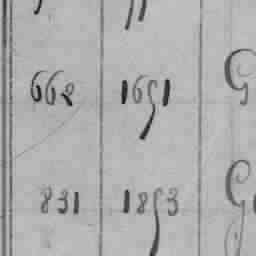 662 1651 G
831 1853 G